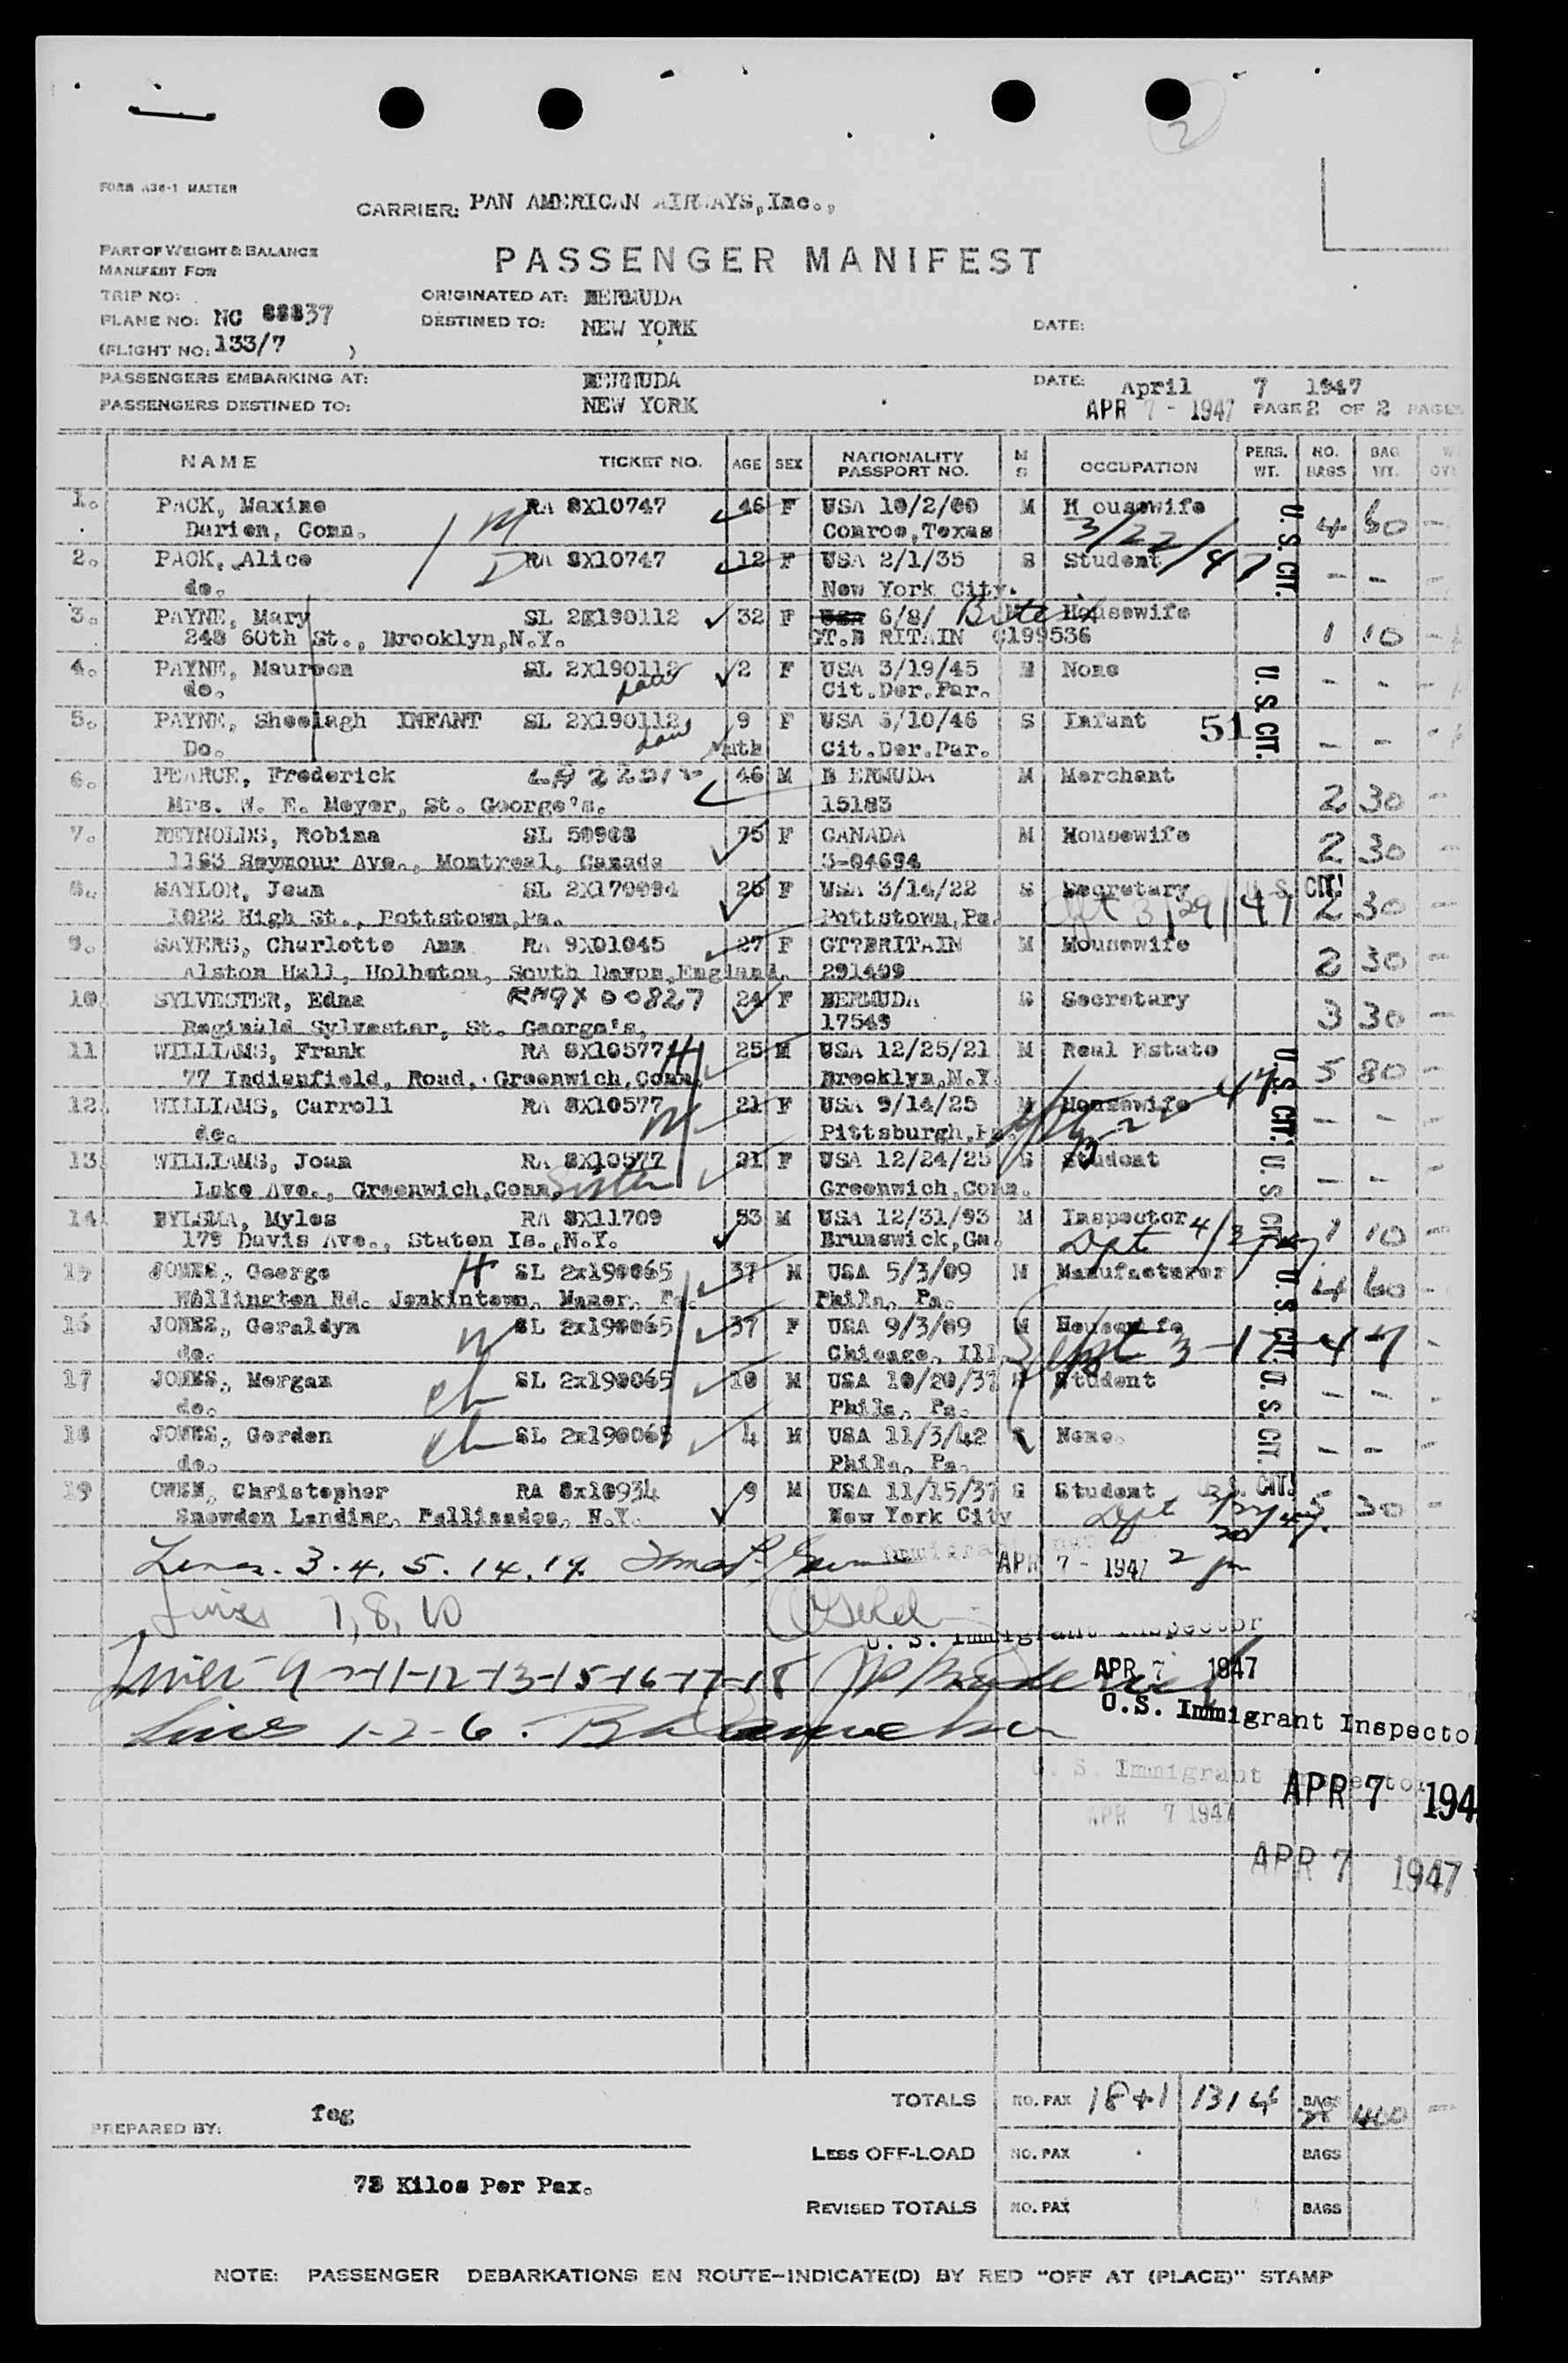 2
FORM A36-1 MASTER
CARRIER: PAN AMERICAN AIRWAYS,Inc.,
PART OF WEIGHT & BALANCE
MANIFEST FOR
PASSENGER MANIFEST
TRIP NO:
ORIGINATED AT: BERMUDA
PLANE NO: NC 88837
DESTINED TO: NEW YORK
DATE:
(FLIGHT NO: 133/7 )
PASSENGERS EMBARKING AT: BERMUDA
DATE: April 7 1947
PASSENGERS DESTINED TO: NEW YORK
APR 7 - 1947 PAGE 2 OF 2 PAGES
NAME TICKET NO. AGE SEX NATIONALITY PASSPORT NO. M S OCCUPATION PERS. WT. NO. BAGS BAG WT.
1. PACK, Maxine RA 8X10747 46 F USA 10/2/00 M Housewife 4 60 -
Darien, Conn. M Conroe,Texas 3/22/47 U.S. CIT.
2. PACK, Alice RA 8X10747 12 F USA 2/1/35 S Student - - -
do. D New York City.
3. PAYNE, Mary SL 2X190112 32 F USA 6/8/ British M Housewife 1 10 -
248 60th St., Brooklyn,N.Y. GT.B RITAIN C199536
4. PAYNE, Maureen SL 2X190112 2 F USA 3/19/45 None - - -
do. dau Cit.Der.Par. U.S. CIT.
5. PAYNE, Sheelagh INFANT SL 2X190112 9 F USA 6/10/46 S Infant 51 - - -
Do. dau Mnth Cit.Der.Par.
6. PEARCE, Frederick 46 M B ERMUDA M Merchant 2 30 -
Mrs. W. E. Meyer, St. George's. 15183
7. REYNOLDS, Robina SL 50908 75 F CANADA M Housewife 2 30 -
1183 Seymour Ave., Montreal, Canada 3-04694
8. SAYLOR, Jean SL 2X170094 25 F USA 3/14/22 S Secretary U.S. CIT. 2 30 -
1022 High St., Pottstown,Pa. Pottstown,Pa. dpt 3/29/47
9. SAYERS, Charlotte Ann RA 9X01045 27 F GT?BRITAIN M Housewife 2 30 -
Alston Hall, Holbeton, South Devon,England. 291409
10. SYLVESTER, Edna RA9X00827 24 F BERMUDA S Secretary 3 30 -
Reginald Sylvester, St. George's, 17549
11 WILLIAMS, Frank RA 8X10577 H 25 M USA 12/25/21 M Real Estate 5 80 -
77 Indianfield, Road, Greenwich,Conn. Brooklyn,N.Y. U.S. CIT.
12. WILLIAMS, Carroll RA 8X10577 W 21 F USA 9/14/25 M Housewife - - -
do. Pittsburgh,Pa.
13. WILLIAMS, Joan RA 8X10577 21 F USA 12/24/25 S Student U.S. CIT. - - -
Lake Ave., Greenwich,Conn. Sister Greenwich,Conn.
14. BYLSMA, Myles RA 8X11709 53 M USA 12/31/93 M Inspector 1 10 -
179 Davis Ave., Staten Is.,N.Y. Brunswick,Ga. Dpt 4/3/47
15 JONES, George H SL 2x190065 37 M USA 5/3/09 M Manufacturer 4 60 -
Wallington Rd. Jenkintown, Manor, Pa. Phila, Pa. U.S. CIT.
16 JONES, Geraldyn W SL 2x190065 37 F USA 9/3/09 M Housewife -
do. Chicago, Ill. dept 3-17-47
17 JONES, Morgan ch SL 2x190065 10 M USA 10/20/37 S Student - - -
do. Phila, Pa. U.S. CIT.
18 JONES, Gordon ch SL 2x190065 4 M USA 11/3/42 S None. - - -
do. Phila, Pa.
19 OWEN, Christopher RA 8x10934 9 M USA 11/15/37 S Student U.S. CIT. 30 -
Snowden Landing, Pallisades, N.Y. New York City Dpt
Lines. 3. 4. 5. 14. 19. APR 7 - 1947 2 pm
Lines 7, 8, 10
U. S. Immigrant Inspector
Lines 9-11-12-13-15-16-17-18 APR 7 1947
U.S. Immigrant Inspector
Lines 1-2-6.
U. S. Immigrant Inspector APR 7 194
APR 7 1947
APR 7 1947
TOTALS NO. PAX 18+1 1314 BAGS 400 -
PREPARED BY: feg
LESS OFF-LOAD NO. PAX BAGS
73 Kilos Per Pax.
REVISED TOTALS NO. PAX BAGS
NOTE: PASSENGER DEBARKATIONS EN ROUTE-INDICATE(D) BY RED "OFF AT (PLACE)" STAMP